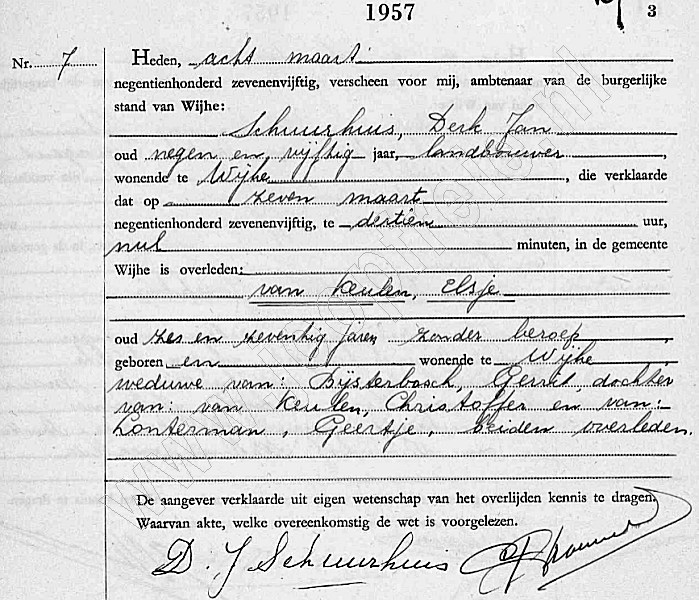 1957
3
Nr. 7 Heden, acht maart
negentienhonderd zevenenvijftig, verscheen voor mij, ambtenaar van de burgerlijke
stand van Wijhe:
Schuurhuis, Derk Jan
oud negen en vijftig jaar, landbouwer ,
wonende te Wijhe , die verklaarde
dat op zeven maart
negentienhonderd zevenenvijftig, te dertien uur,
nul minuten, in de gemeente
Wijhe is overleden:
van Keulen, Elsje
oud zes en zeventig jaren zonder beroep ,
geboren en wonende te Wijhe
weduwe van: Bijsterbosch, Gerrit, dochter
van: van Keulen, Christoffer en van:
Lonterman, Geertje, beiden overleden.
De aangever verklaarde uit eigen wetenschap van het overlijden kennis te dragen.
Waarvan akte, welke overeenkomstig de wet is voorgelezen.
D. J Schuurhuis